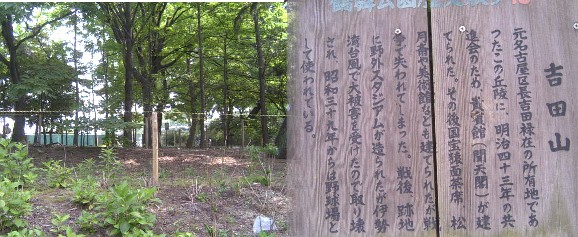 吉田山
元名古屋区長吉田禄在の所有地であ
ったこの丘陵に、明治四十三年の共
進会のため、貴賓館(聞天閣)が建
てられた。その後国宝猿面茶席、松
月斎や美術館なども建てられたが戦
争で失われてしまった。戦後、跡地
に野外スタジアムが造られたが伊勢
湾台風で大被害を受けたので取り壊
され、昭和三十九年からは野球場と
して使われている。